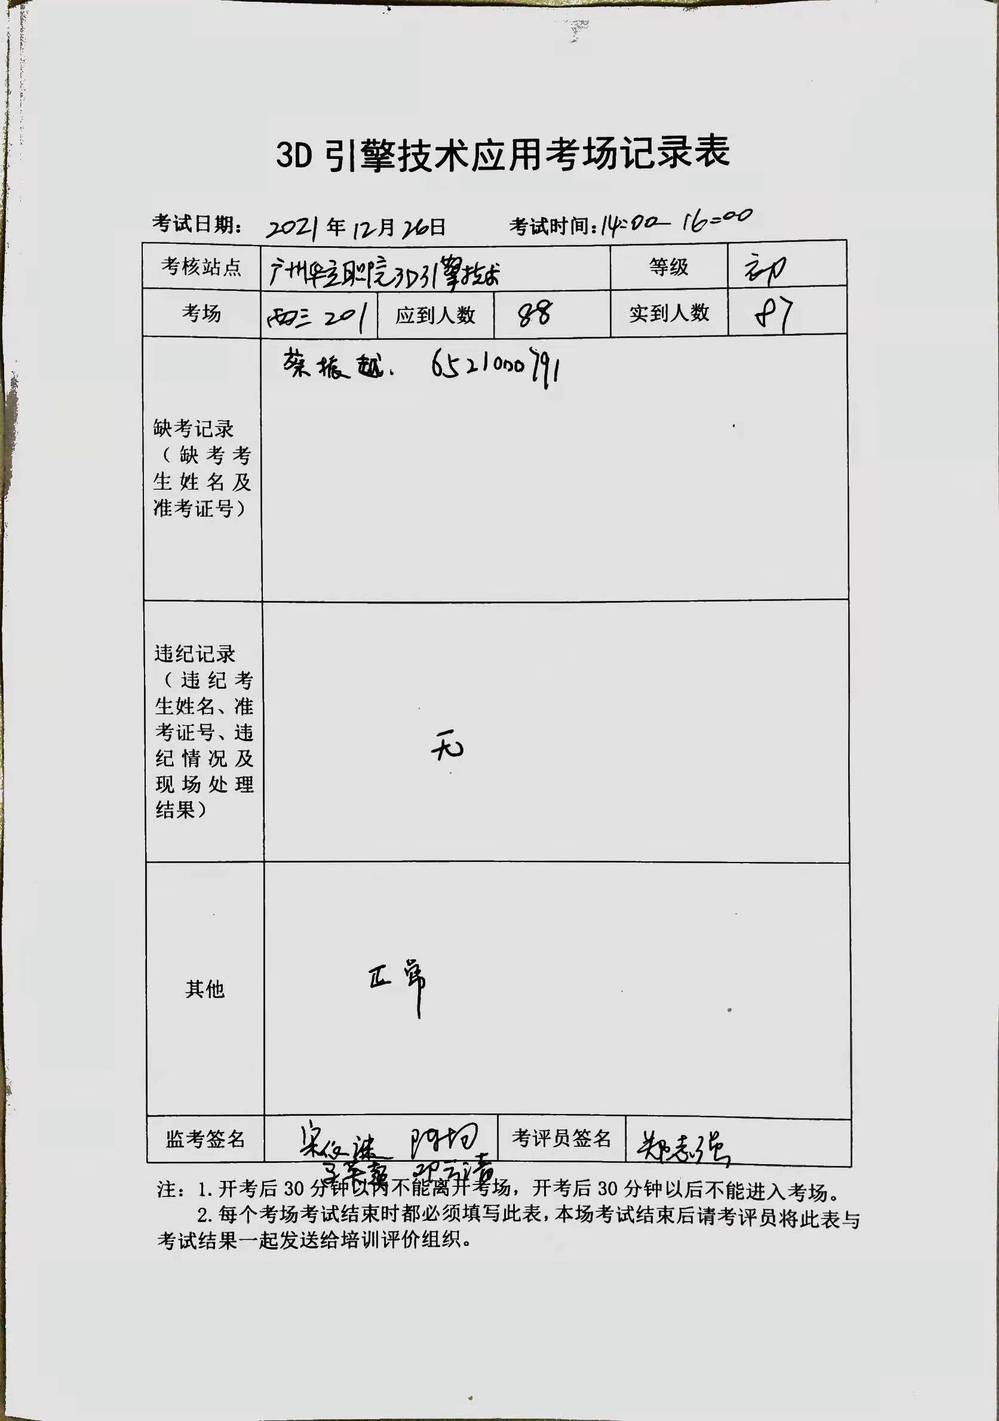 3D引擎技术应用考场记录表
考试日期: 2021年12月26日 考试时间:14:00—16:00
考核站点 广州华立职院3D引擎技术 等级 初
考场 西三201 应到人数 88 实到人数 87
蔡振越. 6521000791
缺考记录
(缺考考
生姓名及
准考证号)
违纪记录
(违纪考
生姓名、准
考证号、违
纪情况及
现场处理
结果)
无
其他
正常
监考签名 考评员签名 郑志强
注: 1.开考后30分钟以内不能离开考场,开考后30分钟以后不能进入考场。
2.每个考场考试结束时都必须填写此表,本场考试结束后请考评员将此表与
考试结果一起发送给培训评价组织。